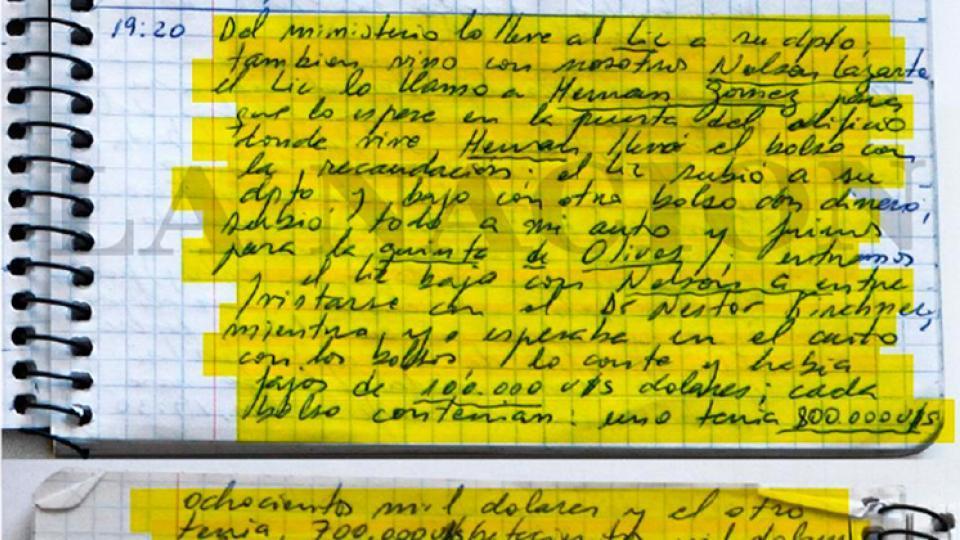 19:20 Del ministerio lo lleve al Lic a su dpto,
tambien vino con nosotros Nelson Lazarte
el Lic lo llamo a Hernan Gomez para
que lo espere en la puerta del edificio
donde vive Hernan llevó el bolso con
la recaudación: el Lic subió a su
dpto y bajo con otro bolso con dinero,
subió todo a mi auto y fuimos
para la quinta de Olivos, entramos
y el Lic bajo con Nelson, a entre
/vistarse con el Dr Nestor Kirchner,
mientras yo esperaba en el auto
con los bolsos, lo conte y habia
fajos de 100.000 u$s dolares; cada
bolso contenian: uno tenia 800.000 u$s
ochocientos mil dolares y el otro
tenia 700.000
LA NACION